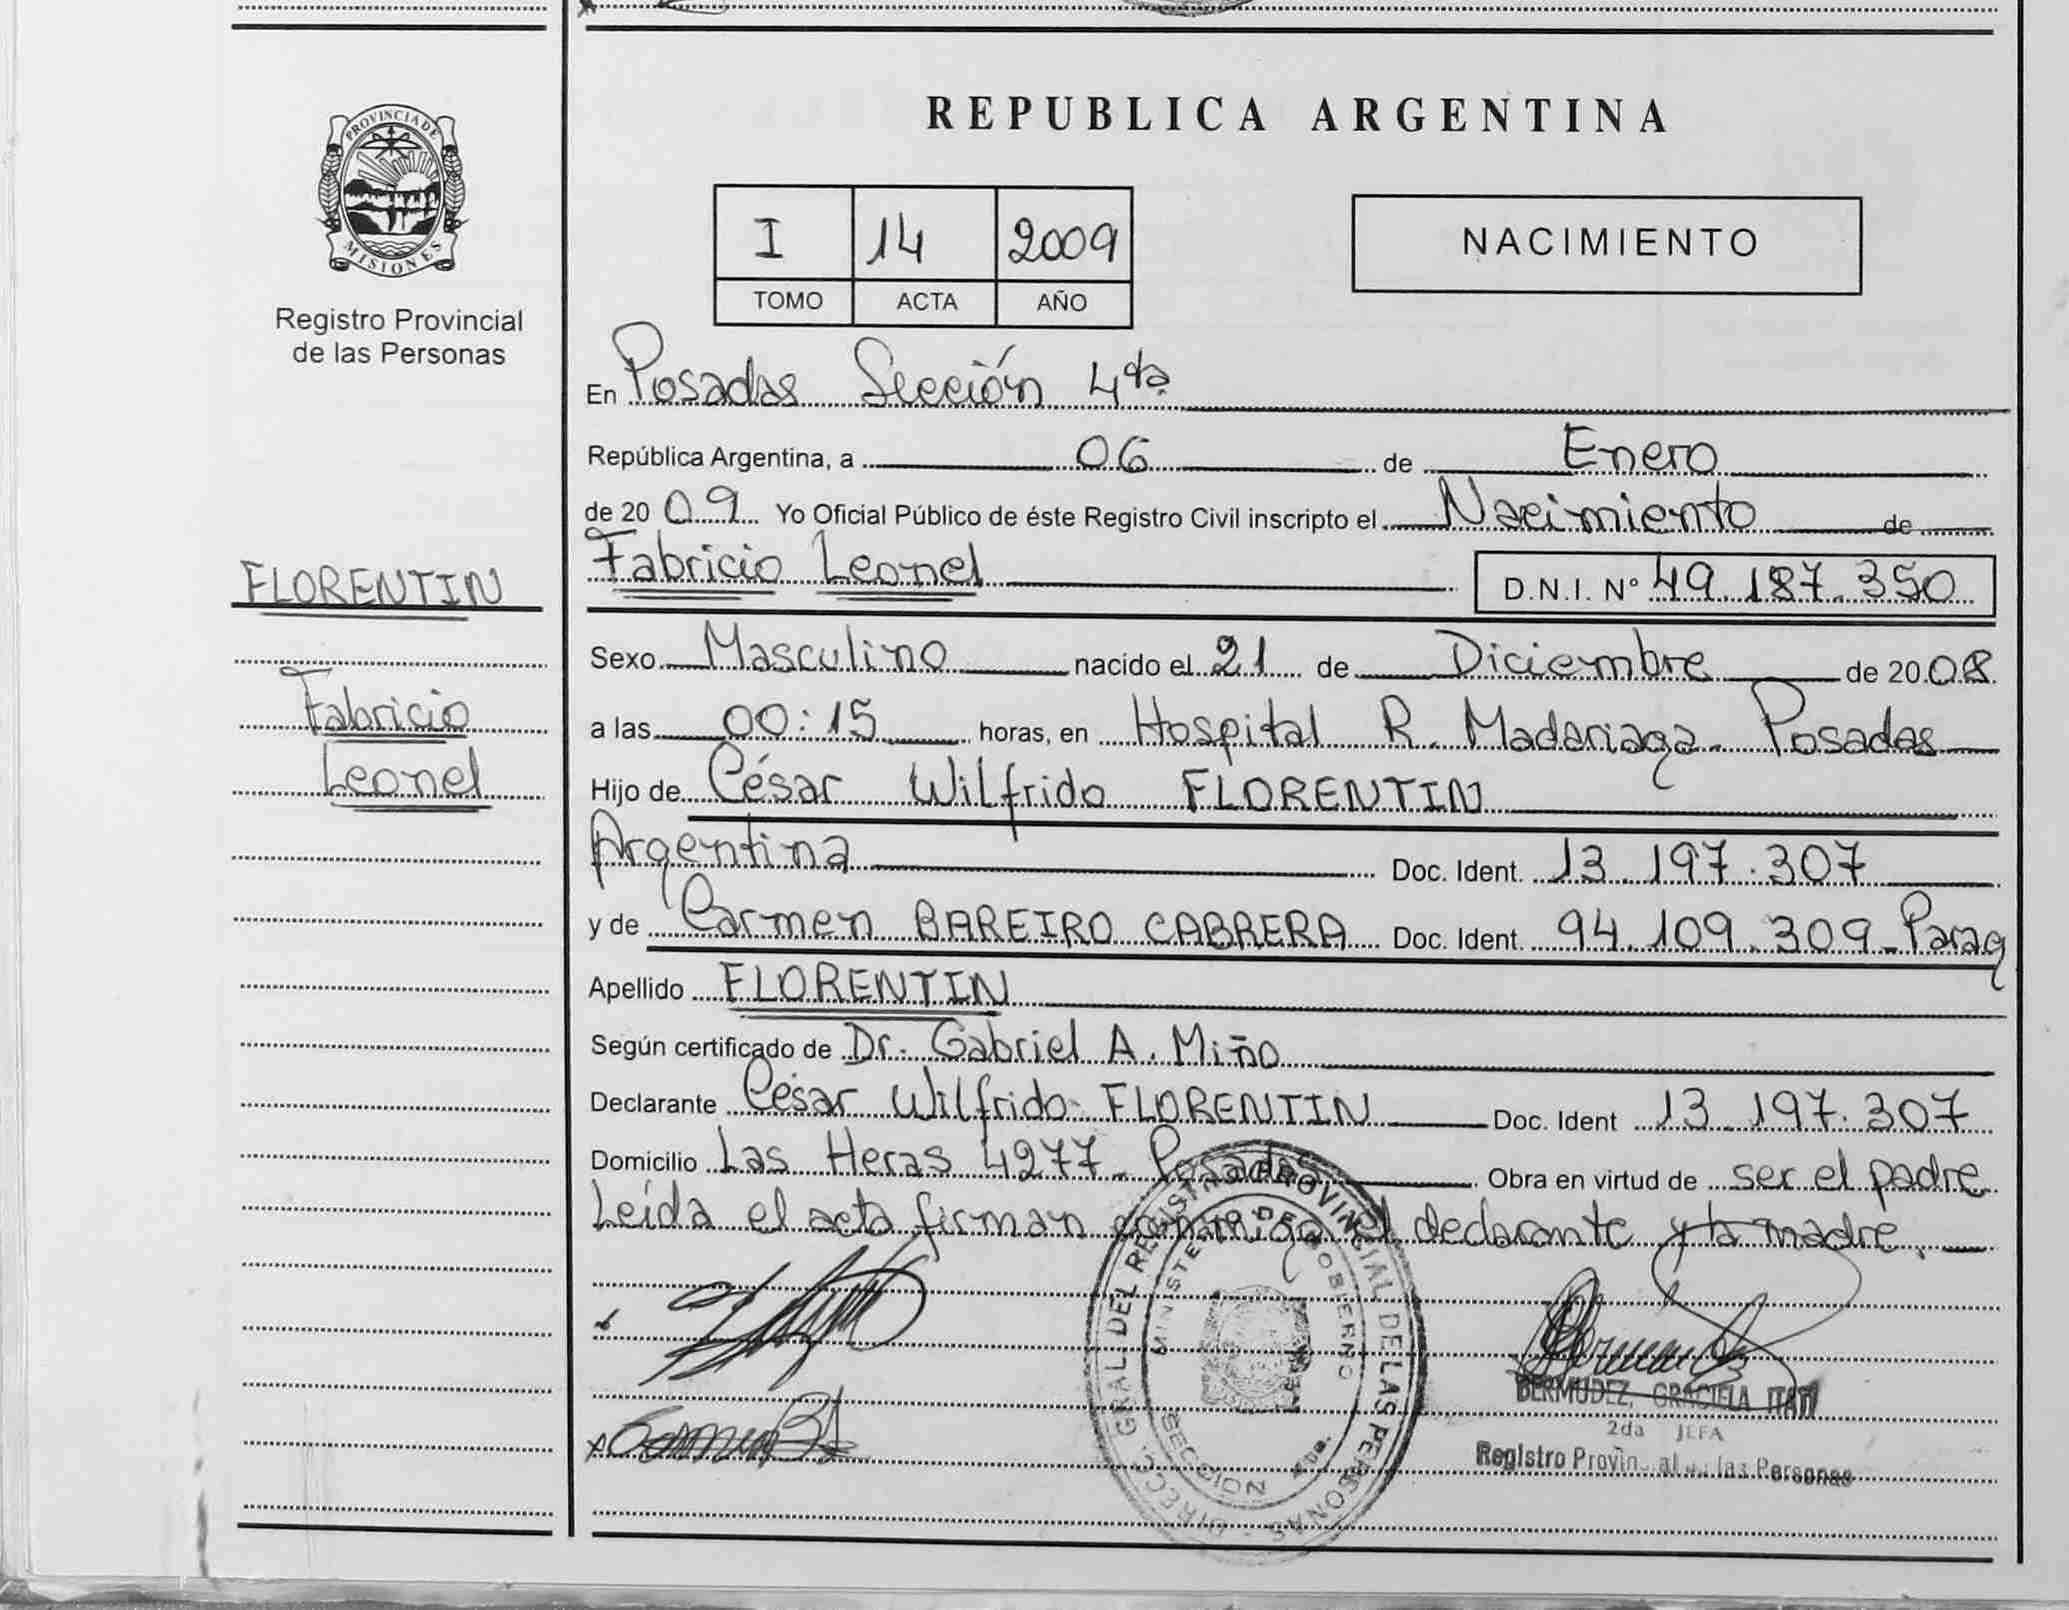 PROVINCIA DE
MISIONES
Registro Provincial
de las Personas
FLORENTIN
Fabricio
Leonel
REPUBLICA ARGENTINA
I 14 2009
TOMO ACTA AÑO
NACIMIENTO
En Posadas Sección 4ta
República Argentina, a 06 de Enero
de 2009 Yo Oficial Público de éste Registro Civil inscripto el Nacimiento de
Fabricio Leonel D.N.I. N° 49.187.350
Sexo Masculino nacido el 21 de Diciembre de 2008
a las 00:15 horas, en Hospital R. Madariaga - Posadas
Hijo de César Wilfrido FLORENTIN
Argentina Doc. Ident. 13.197.307
y de Carmen BAREIRO CABRERA Doc. Ident. 94.109.309 - Parag
Apellido FLORENTIN
Según certificado de Dr. Gabriel A. Miño
Declarante César Wilfrido FLORENTIN Doc. Ident 13.197.307
Domicilio Las Heras 4277 - Posadas Obra en virtud de ser el padre
Leída el acta firman conmigo el declarante y la madre.
DIRECC. GRAL DEL REGISTRO PROVINCIAL DE LAS PERSONAS
MINISTERIO DE GOBIERNO
SECCION
BERMUDEZ, GRACIELA ITATI
2da JEFA
Registro Provincial de las Personas